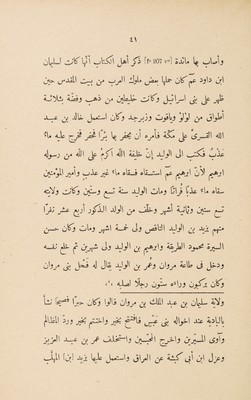 ٤١
وأصاب بها مائدة [f° 207 v°] ذكر أهل الكتاب أنّها كانت لسليمان
ابن داود عم كان حملها بعض ملوك العرب من بيت المقدس حين
ظهر على بنى اسرائيل وكانت خليطين من ذهب وفضّة بثلاثة
أطواق من لولؤ وياقوت وزبرجد وكان استعمل خالد بن عبد
الله القسرىّ على مكّة فأمره أن يحفر بها بئرًا فحفر فخرج عليه ماء
عذبٌ فكتب الى الوليد إنّ خليفة الله اكرمُ على الله من رسوله
ابرهيم لأنّ ابرهيم عم استسقاه فسقاه ماء غير عذبٍ وأمير المؤمنين
سقاه ماء عذبًا فُراتًا ومات الوليد سنة تسع وستّين وكانت ولايته
تسع سنين وثمانية أشهر وخلّف من الولد الذكور أربع عشر نفرًا
منهم يزيد بن الوليد الناقص ولى خمسة أشهر ومات وكان حسن
السيرة محمود الطريقة وابرهيم بن الوليد ولى شهرين ثم خلع نفسه
ودخل فى طاعة مروان وعُمر بن الوليد يقال له فحل بنى مروان
وكان يركبون وراءه ستّون رجلًا لصلبه
ولاية سليمان بن عبد الملك بن مروان قالوا وكان حبرًا فصيحًا نشأ
بالبادية عند اخواله بنى عَبْس فافتتح بخير واختتم بخير وردّ المظالم
وآوى المسيّرين واخرج المحبّسين واستخلف عمر بن عبد العزيز
وعزل ابن أبى كبشة عن العراق واستعمل عليها يزيد ابن] المهلّب